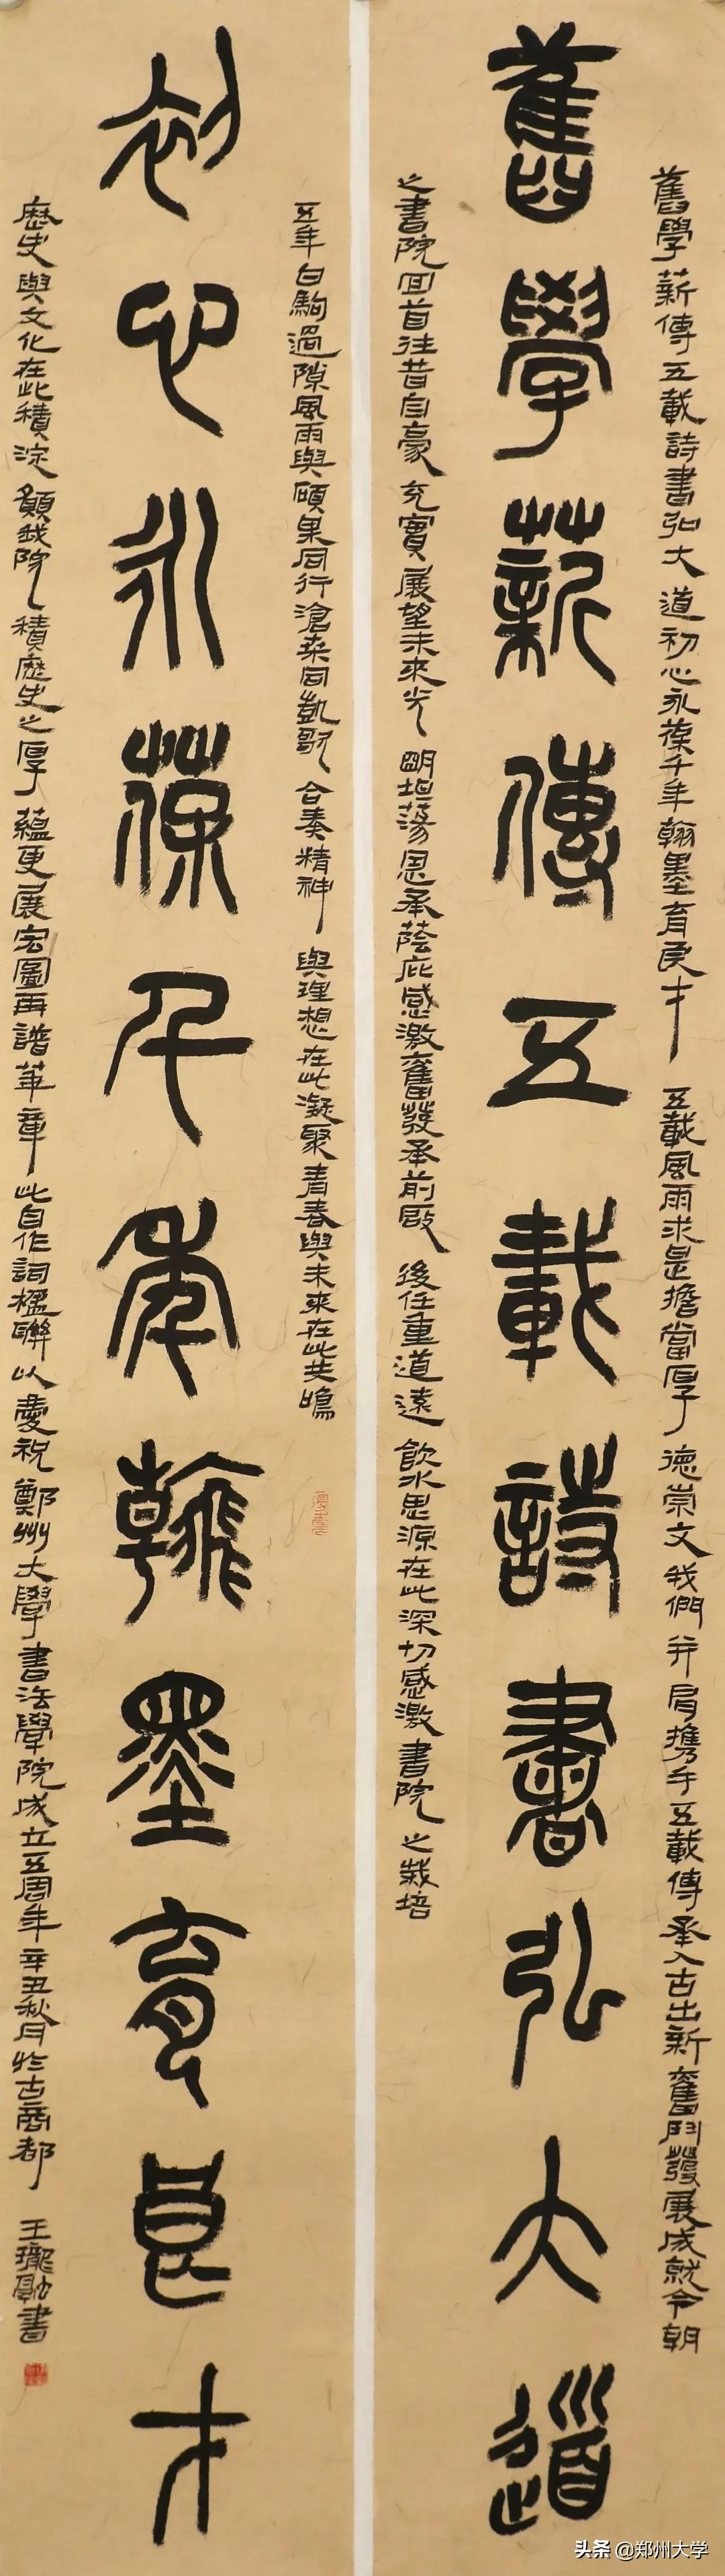 舊學薪傳五載詩書弘大道
舊學薪傳五載詩書弘大道初心永葆千年翰墨育良才五載風雨求是擔當厚德崇文我們并肩攜手五載傳承入古出新奮鬥發展成就今朝
之書院回首往昔自豪充實展望未來光明坦蕩恩承蔭庇感激奮發承前啟後任重道遠飲水思源在此深切感激書院之栽培
初心永葆千年翰墨育良才
五年白駒過隙風雨與碩果同行滄桑同凱歌合奏精神與理想在此凝聚青春與未來在此共鳴
歷史與文化在此積淀願我院積歷史之厚蘊更展宏圖再譜華章此自作詞楹聯以慶祝鄭州大學書法學院成立五周年辛丑秋月於古商都
王瓏融書
头条 @郑州大学